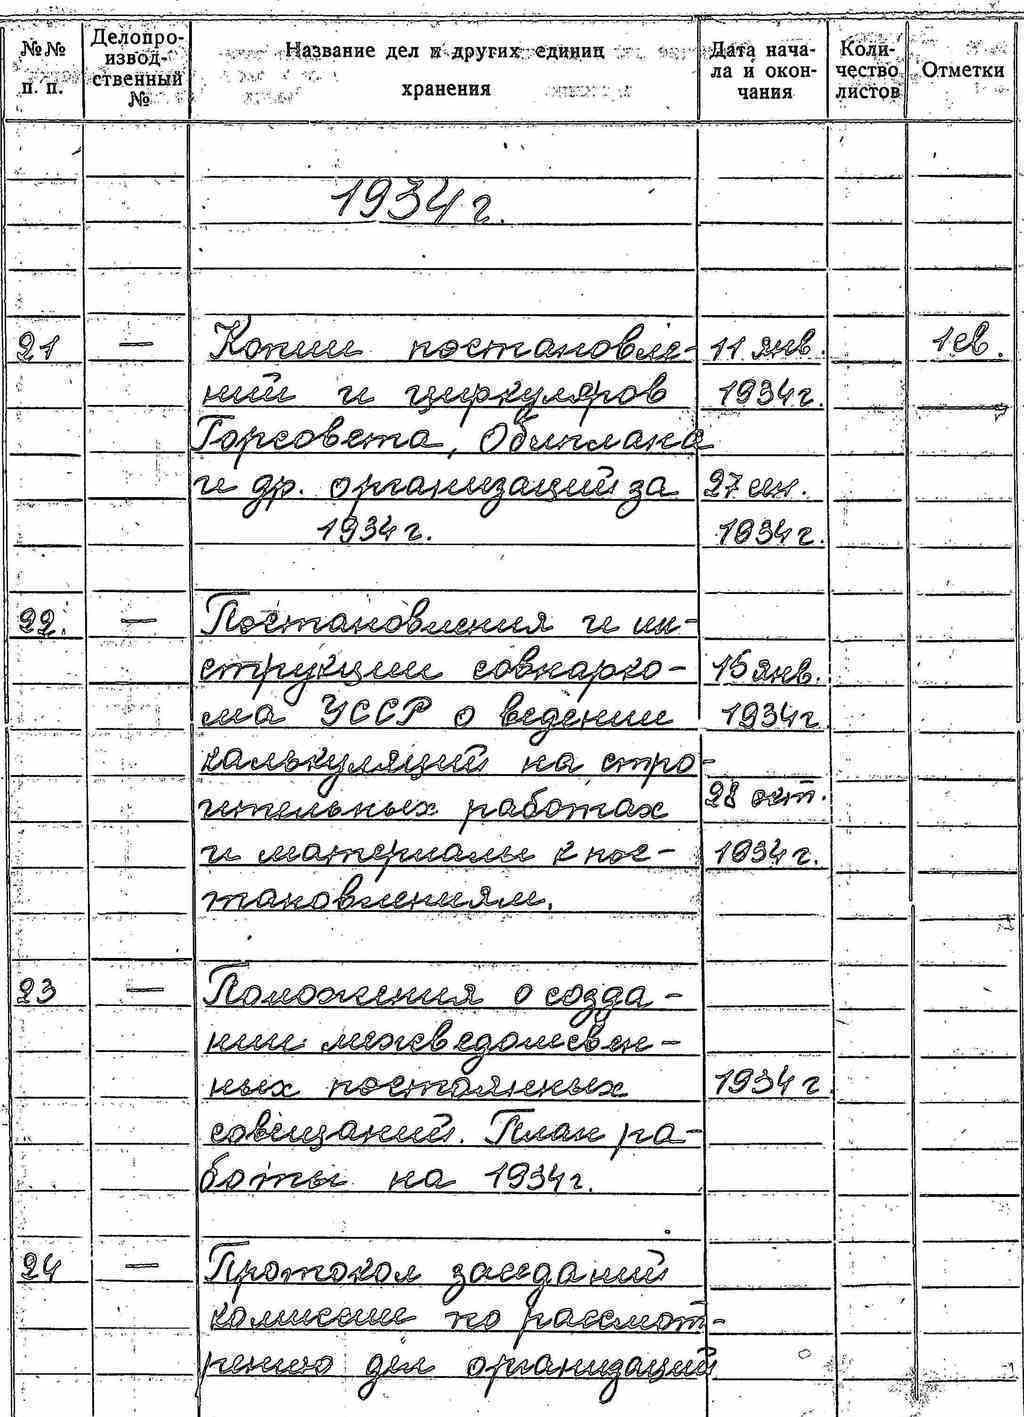 №№ п. п.
Делопро-
извод-
ственный
№
Название дел и других единиц
хранения
Дата нача-
ла и окон-
чания
Коли-
чество
листов
Отметки
1934 г.
21 — Копии постановле- 11 янв. 1 св.
ний и циркуляров 1934 г.
Горсовета, Облплана
и др. организаций за 27 сен.
1934 г. 1934 г.
22. — Постановления и ин-
струкции совнарко- 15 янв.
ма УССР о ведении 1934 г.
калькуляций на стро-
ительных работах 28 окт.
и материалы к пос- 1934 г.
тановлениям.
23 — Положения о созда-
нии межведомсвен-
ных постоянных 1934 г.
совещаний. План ра-
боты на 1934 г.
24 — Протокол заседаний
комиссии по рассмот-
рению дел организаций